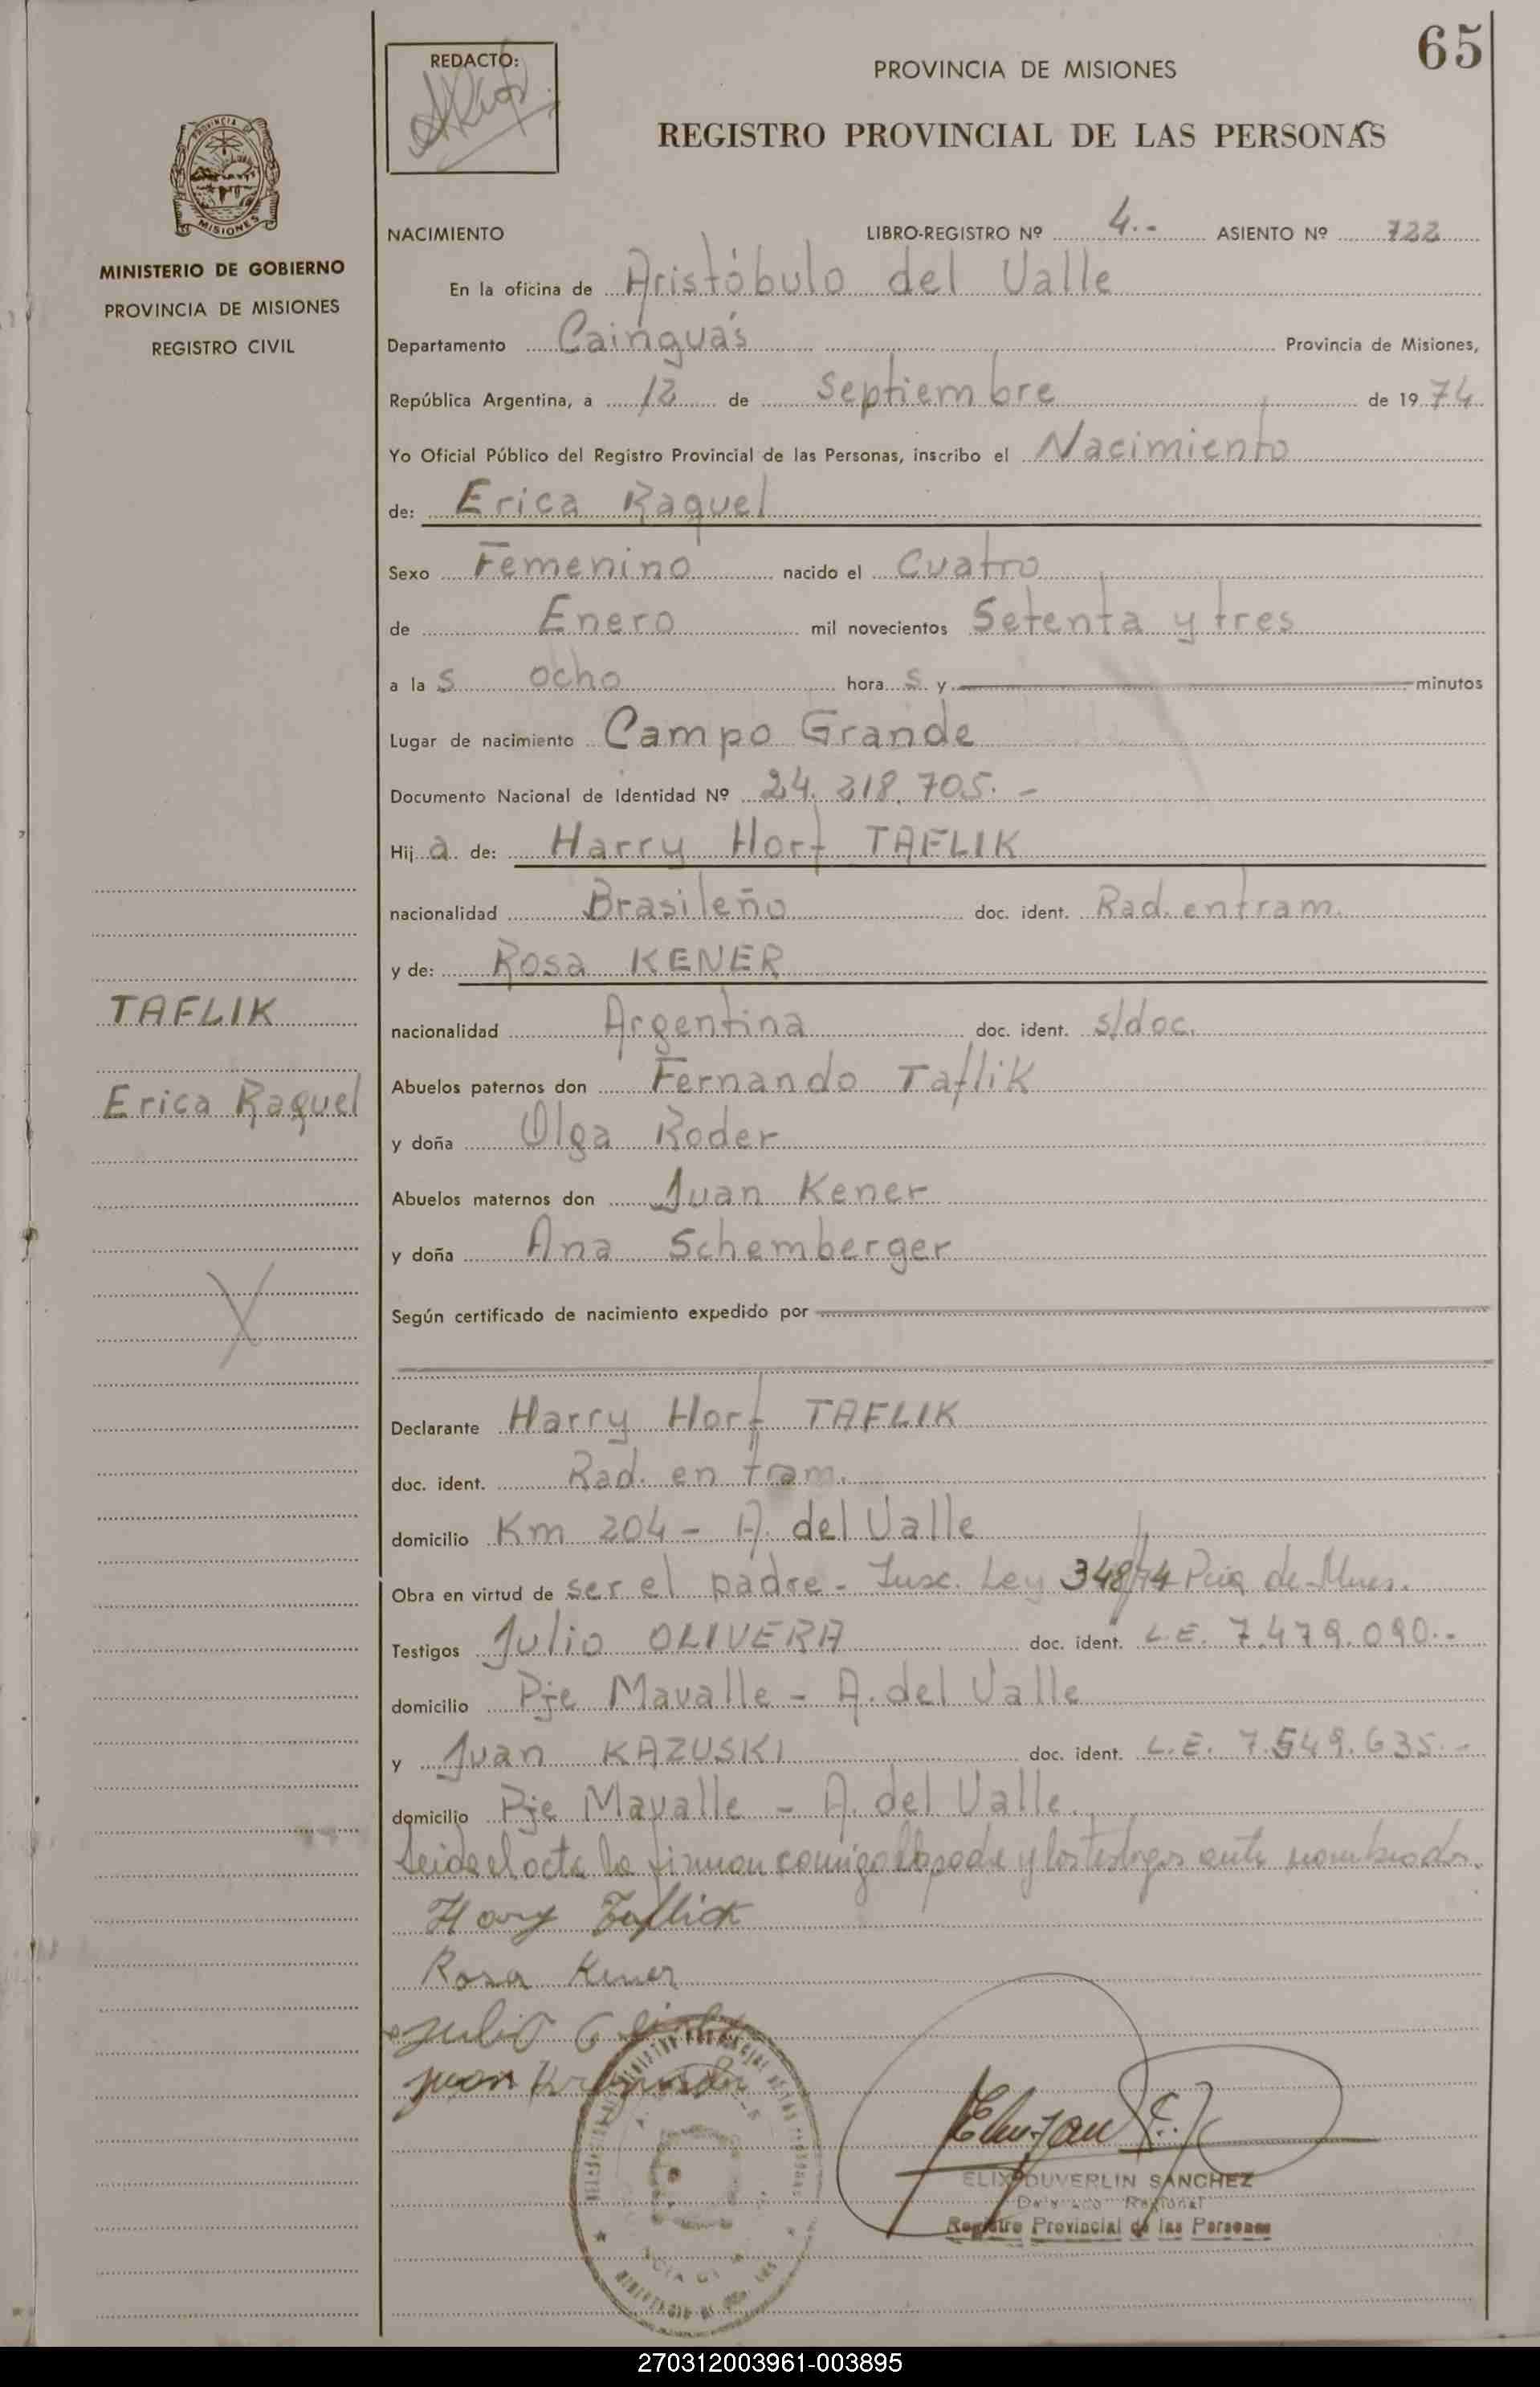 65
REDACTO:
PROVINCIA DE MISIONES
REGISTRO PROVINCIAL DE LAS PERSONAS
PROVINCIA DE
MISIONES
MINISTERIO DE GOBIERNO
PROVINCIA DE MISIONES
REGISTRO CIVIL
NACIMIENTO LIBRO-REGISTRO Nº 4.- ASIENTO Nº 722
En la oficina de Aristóbulo del Valle
Departamento Cainguás Provincia de Misiones,
República Argentina, a 12 de Septiembre de 1974
Yo Oficial Público del Registro Provincial de las Personas, inscribo el Nacimiento
de: Erica Raquel
Sexo Femenino nacido el Cuatro
de Enero mil novecientos Setenta y tres
a las ocho horas y minutos
Lugar de nacimiento Campo Grande
Documento Nacional de Identidad Nº 24.218.705.-
Hija de: Harry Horf TAFLIK
nacionalidad Brasileño doc. ident. Rad. en tram.
y de: Rosa KENER
TAFLIK
nacionalidad Argentina doc. ident. s/doc.
Abuelos paternos don Fernando Taflik
Erica Raquel
y doña Olga Roder
Abuelos maternos don Juan Kener
y doña Ana Schemberger
Según certificado de nacimiento expedido por
Declarante Harry Horf TAFLIK
doc. ident. Rad. en tram.
domicilio Km 204 - A. del Valle
Obra en virtud de ser el padre - Insc. Ley 348/74 Pcia de Mnes.
Testigos Julio OLIVERA doc. ident. L.E. 7.479.090.-
domicilio Pje Mavalle - A. del Valle
y Juan KAZUSKI doc. ident. L.E. 7.549.635.-
domicilio Pje Mavalle - A. del Valle.
Leida el acta la firman conmigo el padre y los testigos ante nombrados.
Harry Taflick
Rosa Kener
Julio
Juan
ELIX DUVERLIN SANCHEZ
Delegado Regional
Registro Provincial de las Personas
270312003961-003895